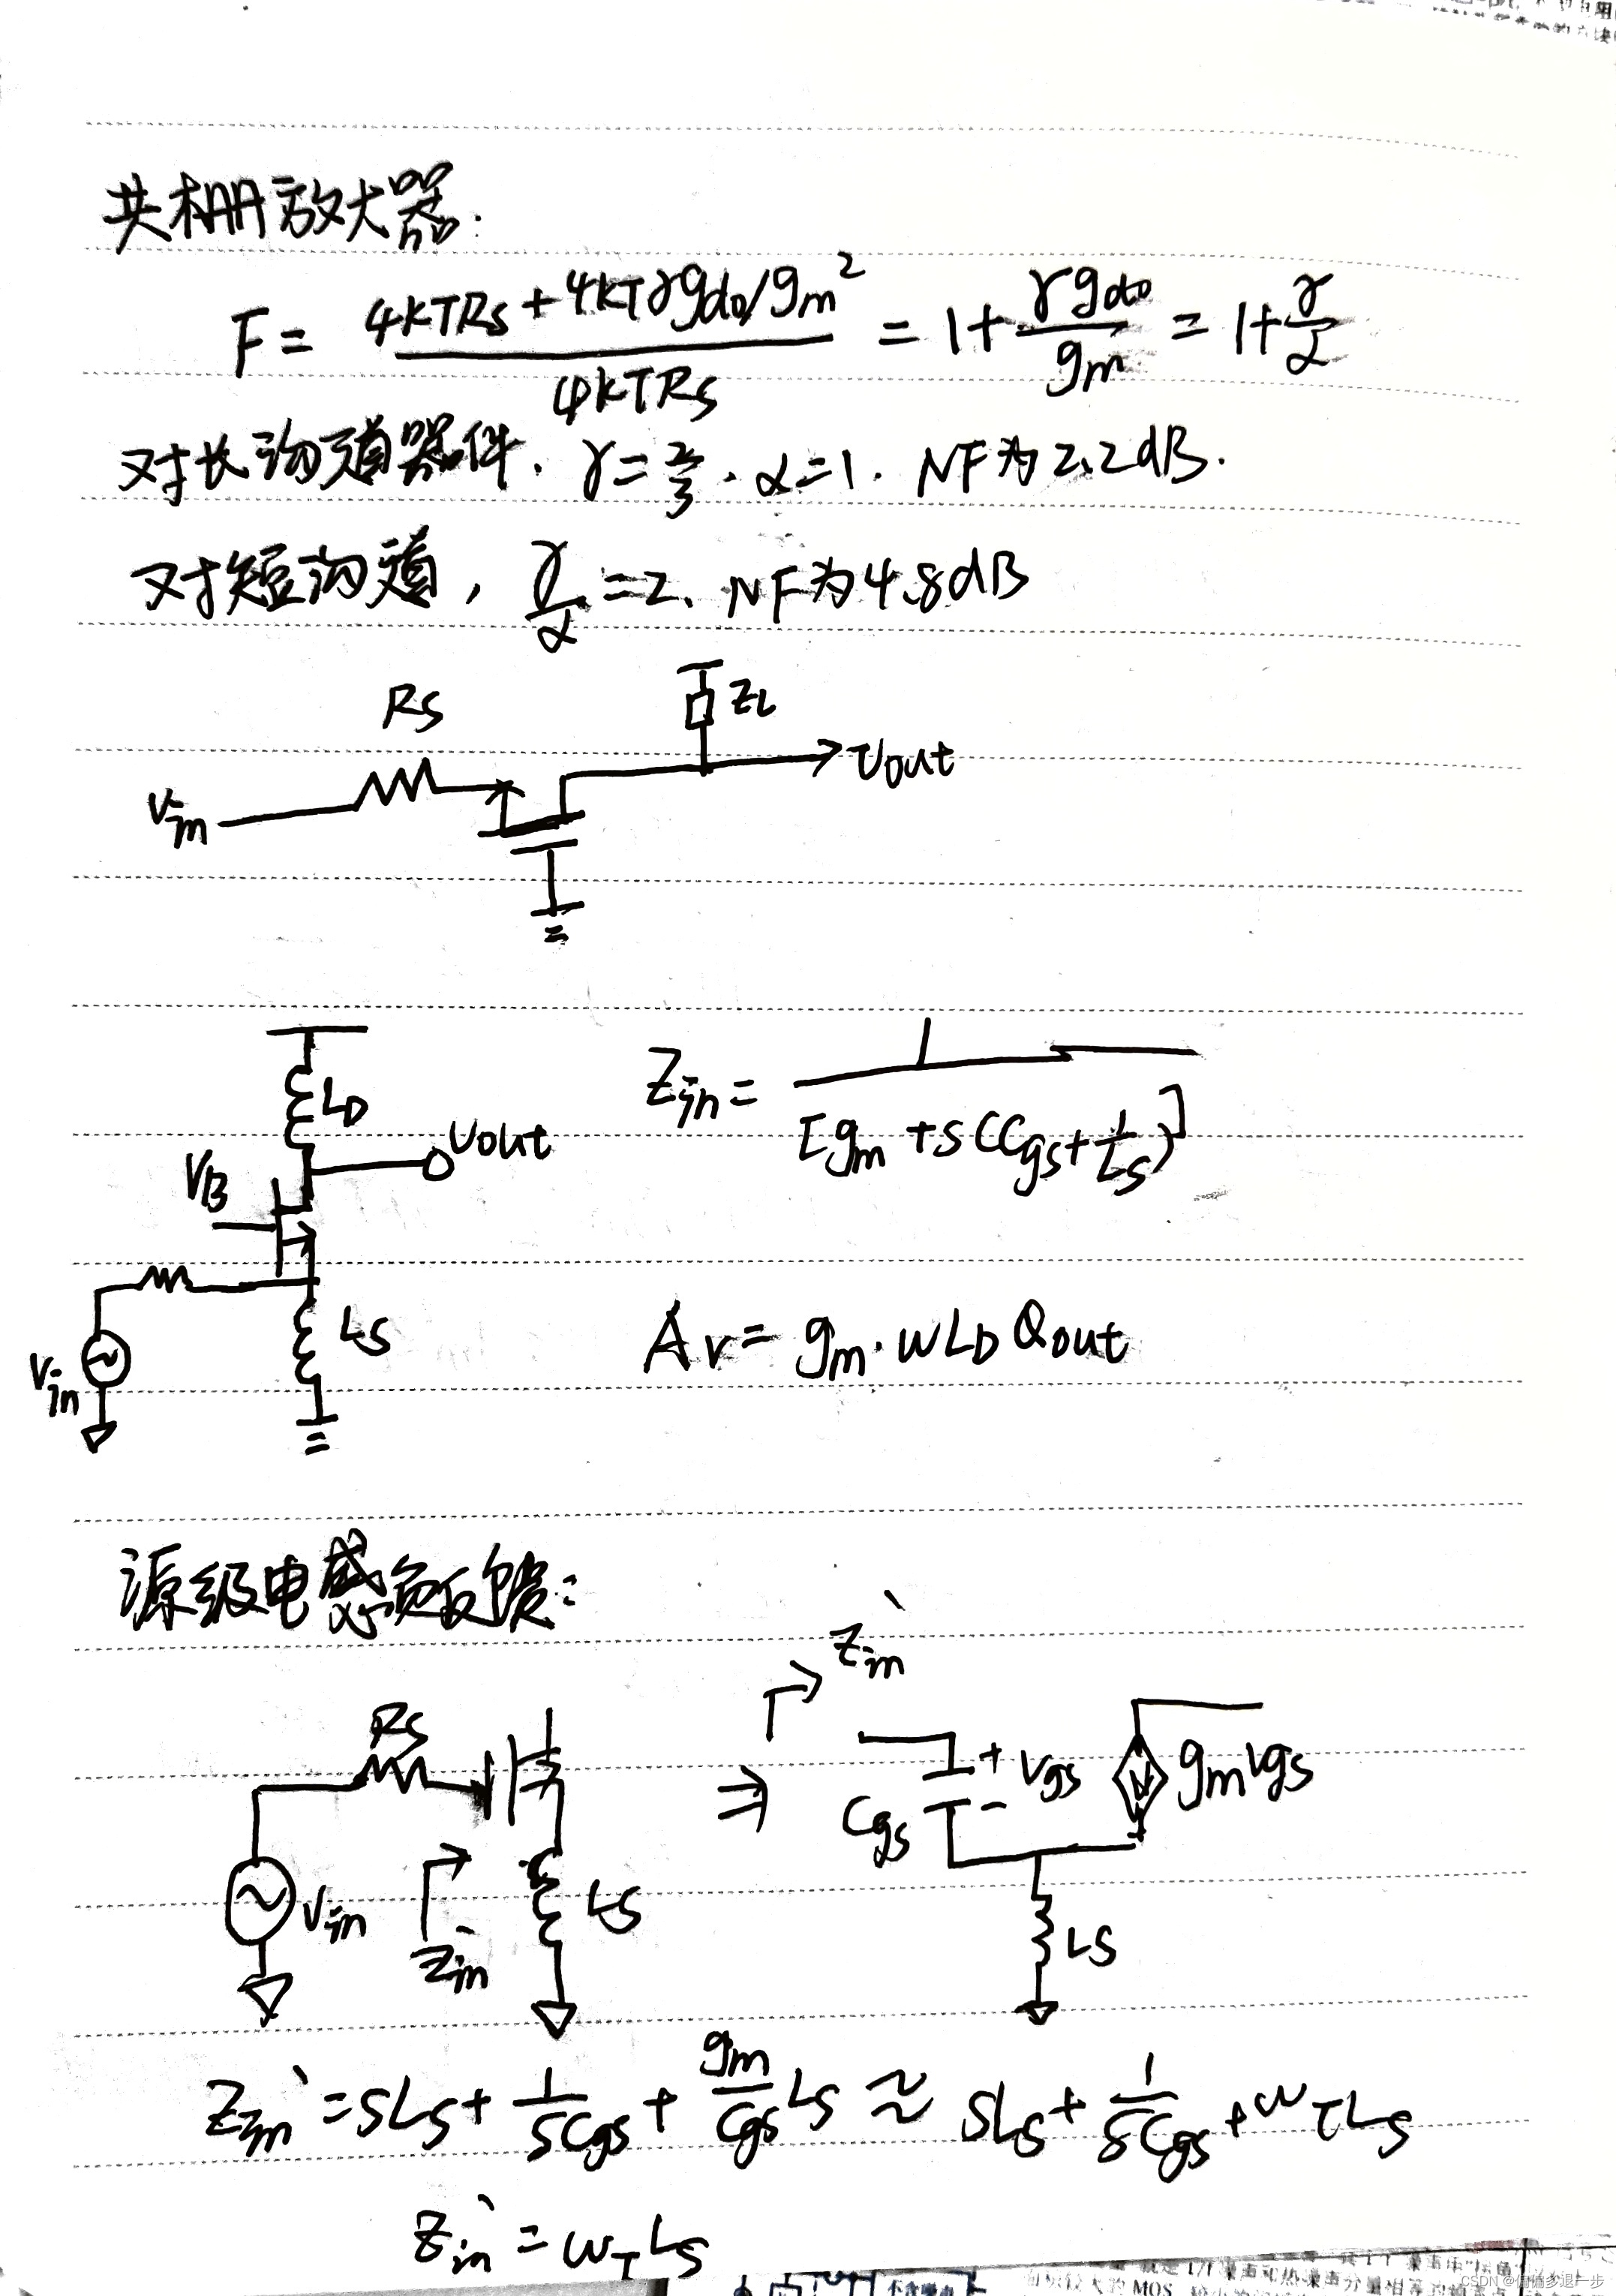 共栅放大器:
F = (4KTRs + 4KTγgdo/gm²) / 4KTRs = 1 + γgdo/gm = 1 + γ/α
对长沟道器件. γ = 2/3 . α = 1. NF为2.2dB.
对短沟道, γ/α = 2. NF为4.8dB
Rs
ZL
Vin
Vout
LD
Vout
VB
Ls
Vin
Zin = 1 / [gm + s(Cgs + 1/Ls)]
Av = gm·ωLD Qout
源级电感负反馈:
Rs
Vin
Zin
Ls
⇒
Zin`
Cgs
+ Vgs -
gmVgs
Ls
Zin` = SLs + 1/SCgs + gm/Cgs Ls ≈ SLs + 1/SCgs + ωTLs
Zin` = ωTLs
CSDN